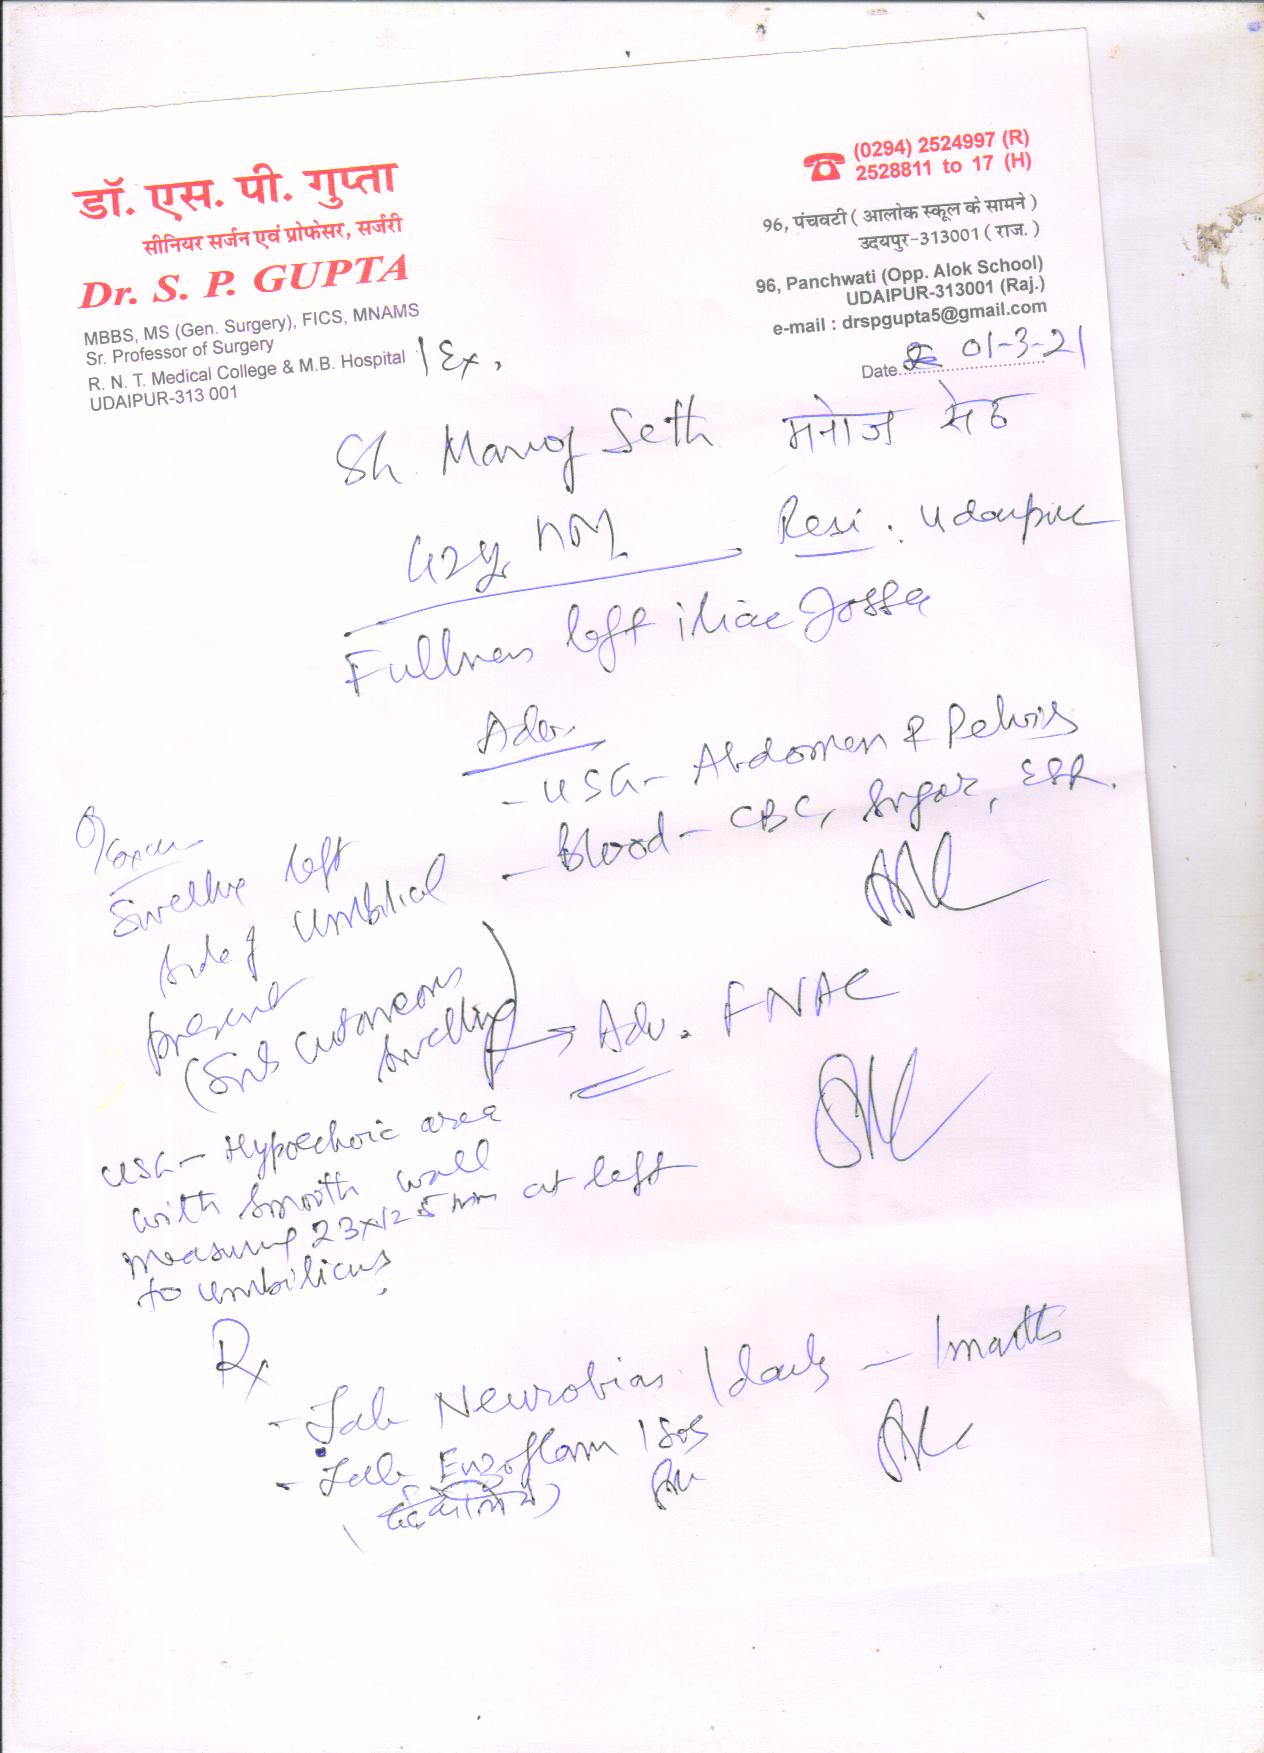 डॉ. एस. पी. गुप्ता
सीनियर सर्जन एवं प्रोफेसर, सर्जरी
Dr. S. P. GUPTA
MBBS, MS (Gen. Surgery), FICS, MNAMS
Sr. Professor of Surgery
R. N. T. Medical College & M.B. Hospital | Ex,
UDAIPUR-313 001
(0294) 2524997 (R)
2528811 to 17 (H)
96, पंचवटी ( आलोक स्कूल के सामने )
उदयपुर-313001 ( राज. )
96, Panchwati (Opp. Alok School)
UDAIPUR-313001 (Raj.)
e-mail : drspgupta5@gmail.com
Date 01-3-21
Sh. Manoj Seth मनोज सेठ
42y Resi. Udaipur
Fullness left iliac fossa
Adv.
- USG - Abdomen & Pelvis
- Blood - CBC, Sugar, ESR.
O/exam
Swelling left
side of Umbilical
present
(Sub cutaneous
swelling) → Adv. FNAC
USG - Hypoechoic area
with smooth wall
measuring 23x12 5 mm at left
to umbilicus
Rx
- Tab Neurobion 1 daily - 1 month
- Tab Enzoflam 1 SOS